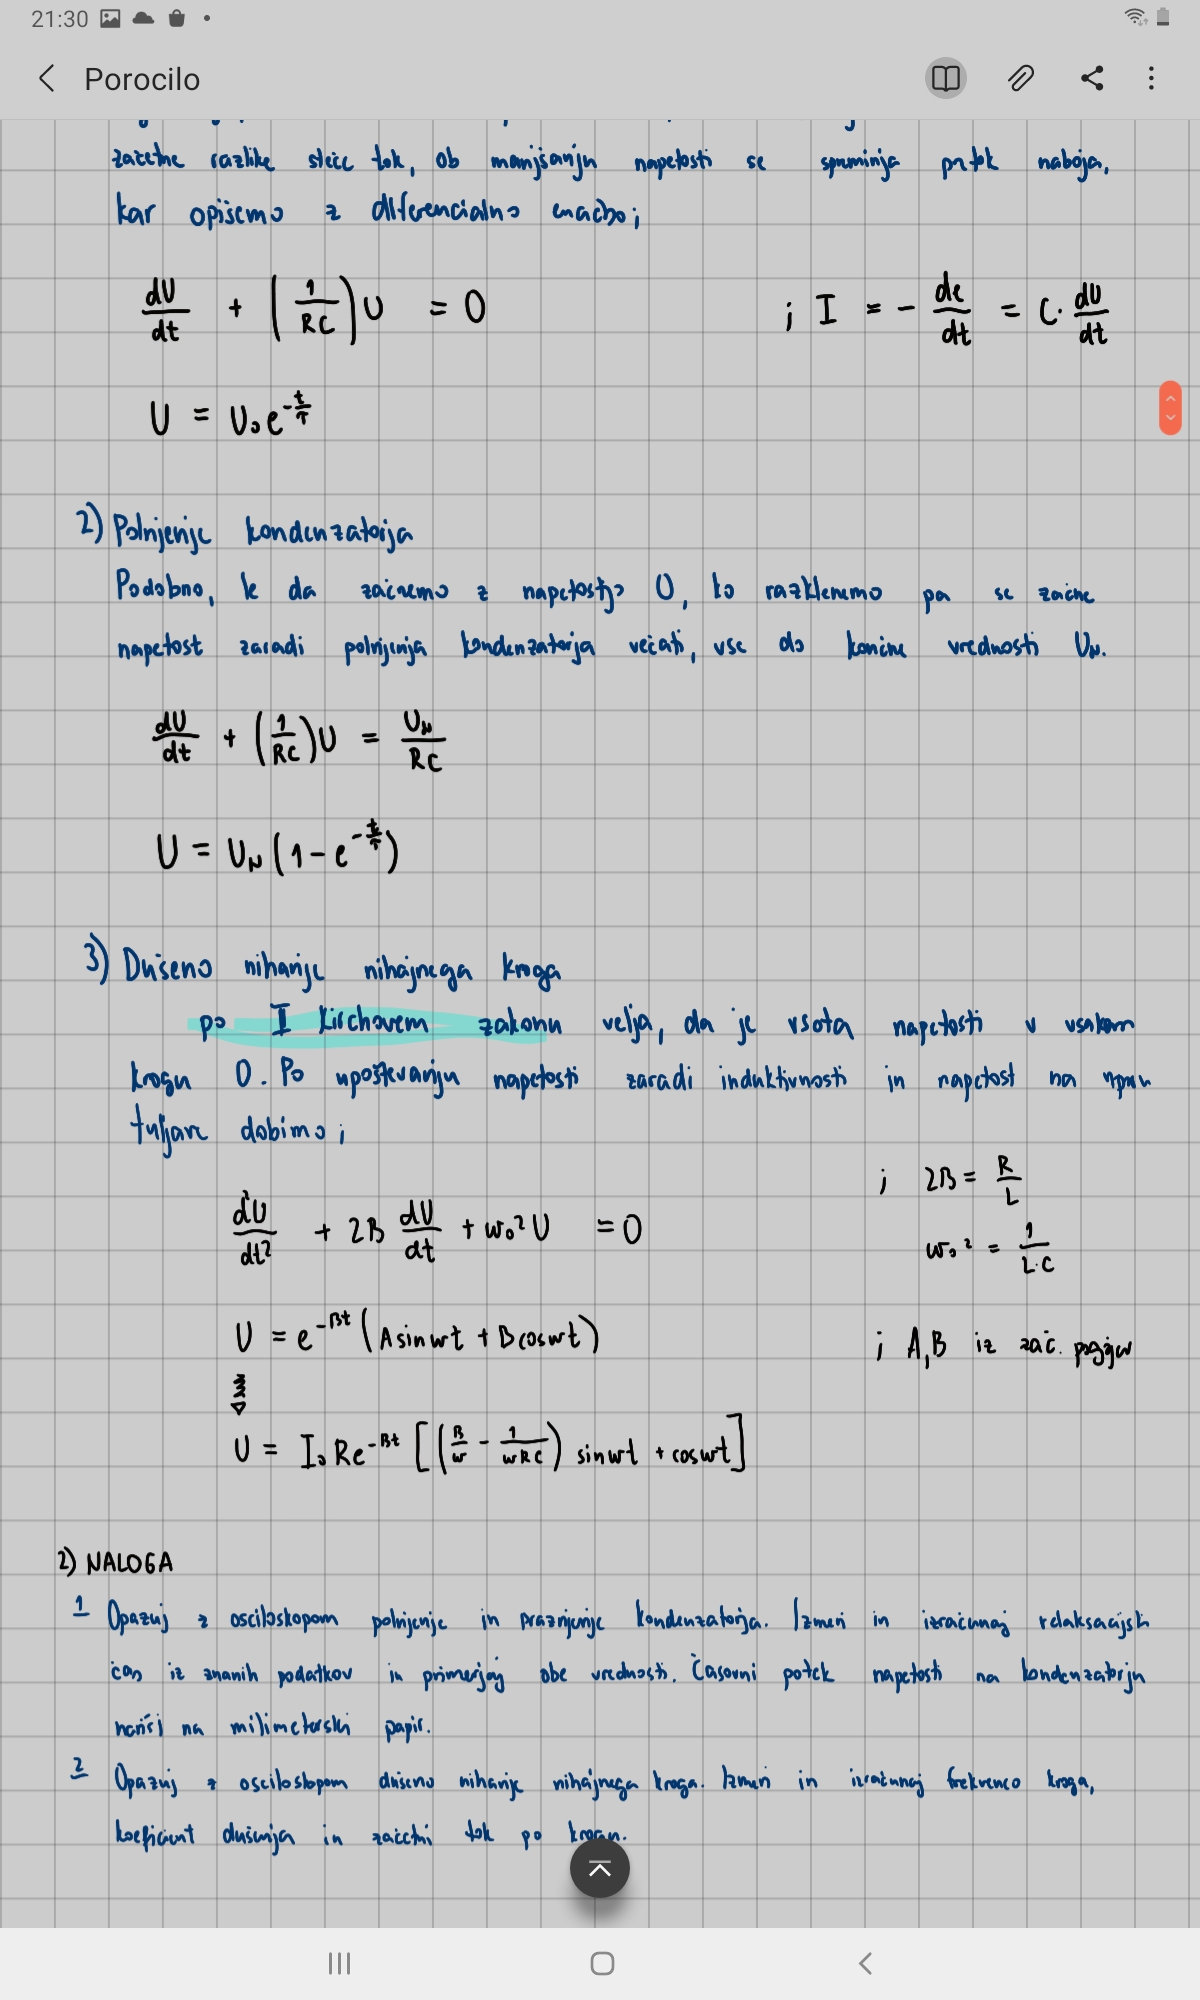 21:30
Porocilo
začetne razlike steče tok, ob manjšanju napetosti se spreminja pretok naboja,
kar opišemo z diferencialno enačbo;
dU/dt + (1/RC)U = 0 ; I = - de/dt = C · dU/dt
U = U₀e^(-t/τ)
2) Polnjenje kondenzatorja
Podobno, le da začnemo z napetostjo 0, ko razklenemo pa se začne
napetost zaradi polnjenja kondenzatorja večati, vse do končne vrednosti U_N.
dU/dt + (1/RC)U = U_N/RC
U = U_N(1 - e^(-t/τ))
3) Dušeno nihanje nihajnega kroga
po I Kirchovem zakonu velja, da je vsota napetosti v vsakem
krogu 0. Po upoštevanju napetosti zaradi induktivnosti in napetost na
tuljave dobimo;
; 2β = R/L
d²U/dt² + 2β dU/dt + ω₀²U = 0
ω₀² = 1/L·C
U = e^(-βt)(A sinωt + B cosωt) ; A,B iz zač. pogojev
U = I₀Re^(-βt)[(β/ω - 1/ωRC) sinωt + cosωt]
2) NALOGA
1 Opazuj z osciloskopom polnjenje in praznjenje kondenzatorja. Izmeri in izračunaj relaksacijski
čas iz znanih podatkov in primerjaj obe vrednosti. Časovni potek napetosti na kondenzatorju
nariši na milimeterski papir.
2 Opazuj z osciloskopom dušeno nihanje nihajnega kroga. Izmeri in izračunaj frekvenco kroga,
koeficient dušenja in začetni tok po krogu.